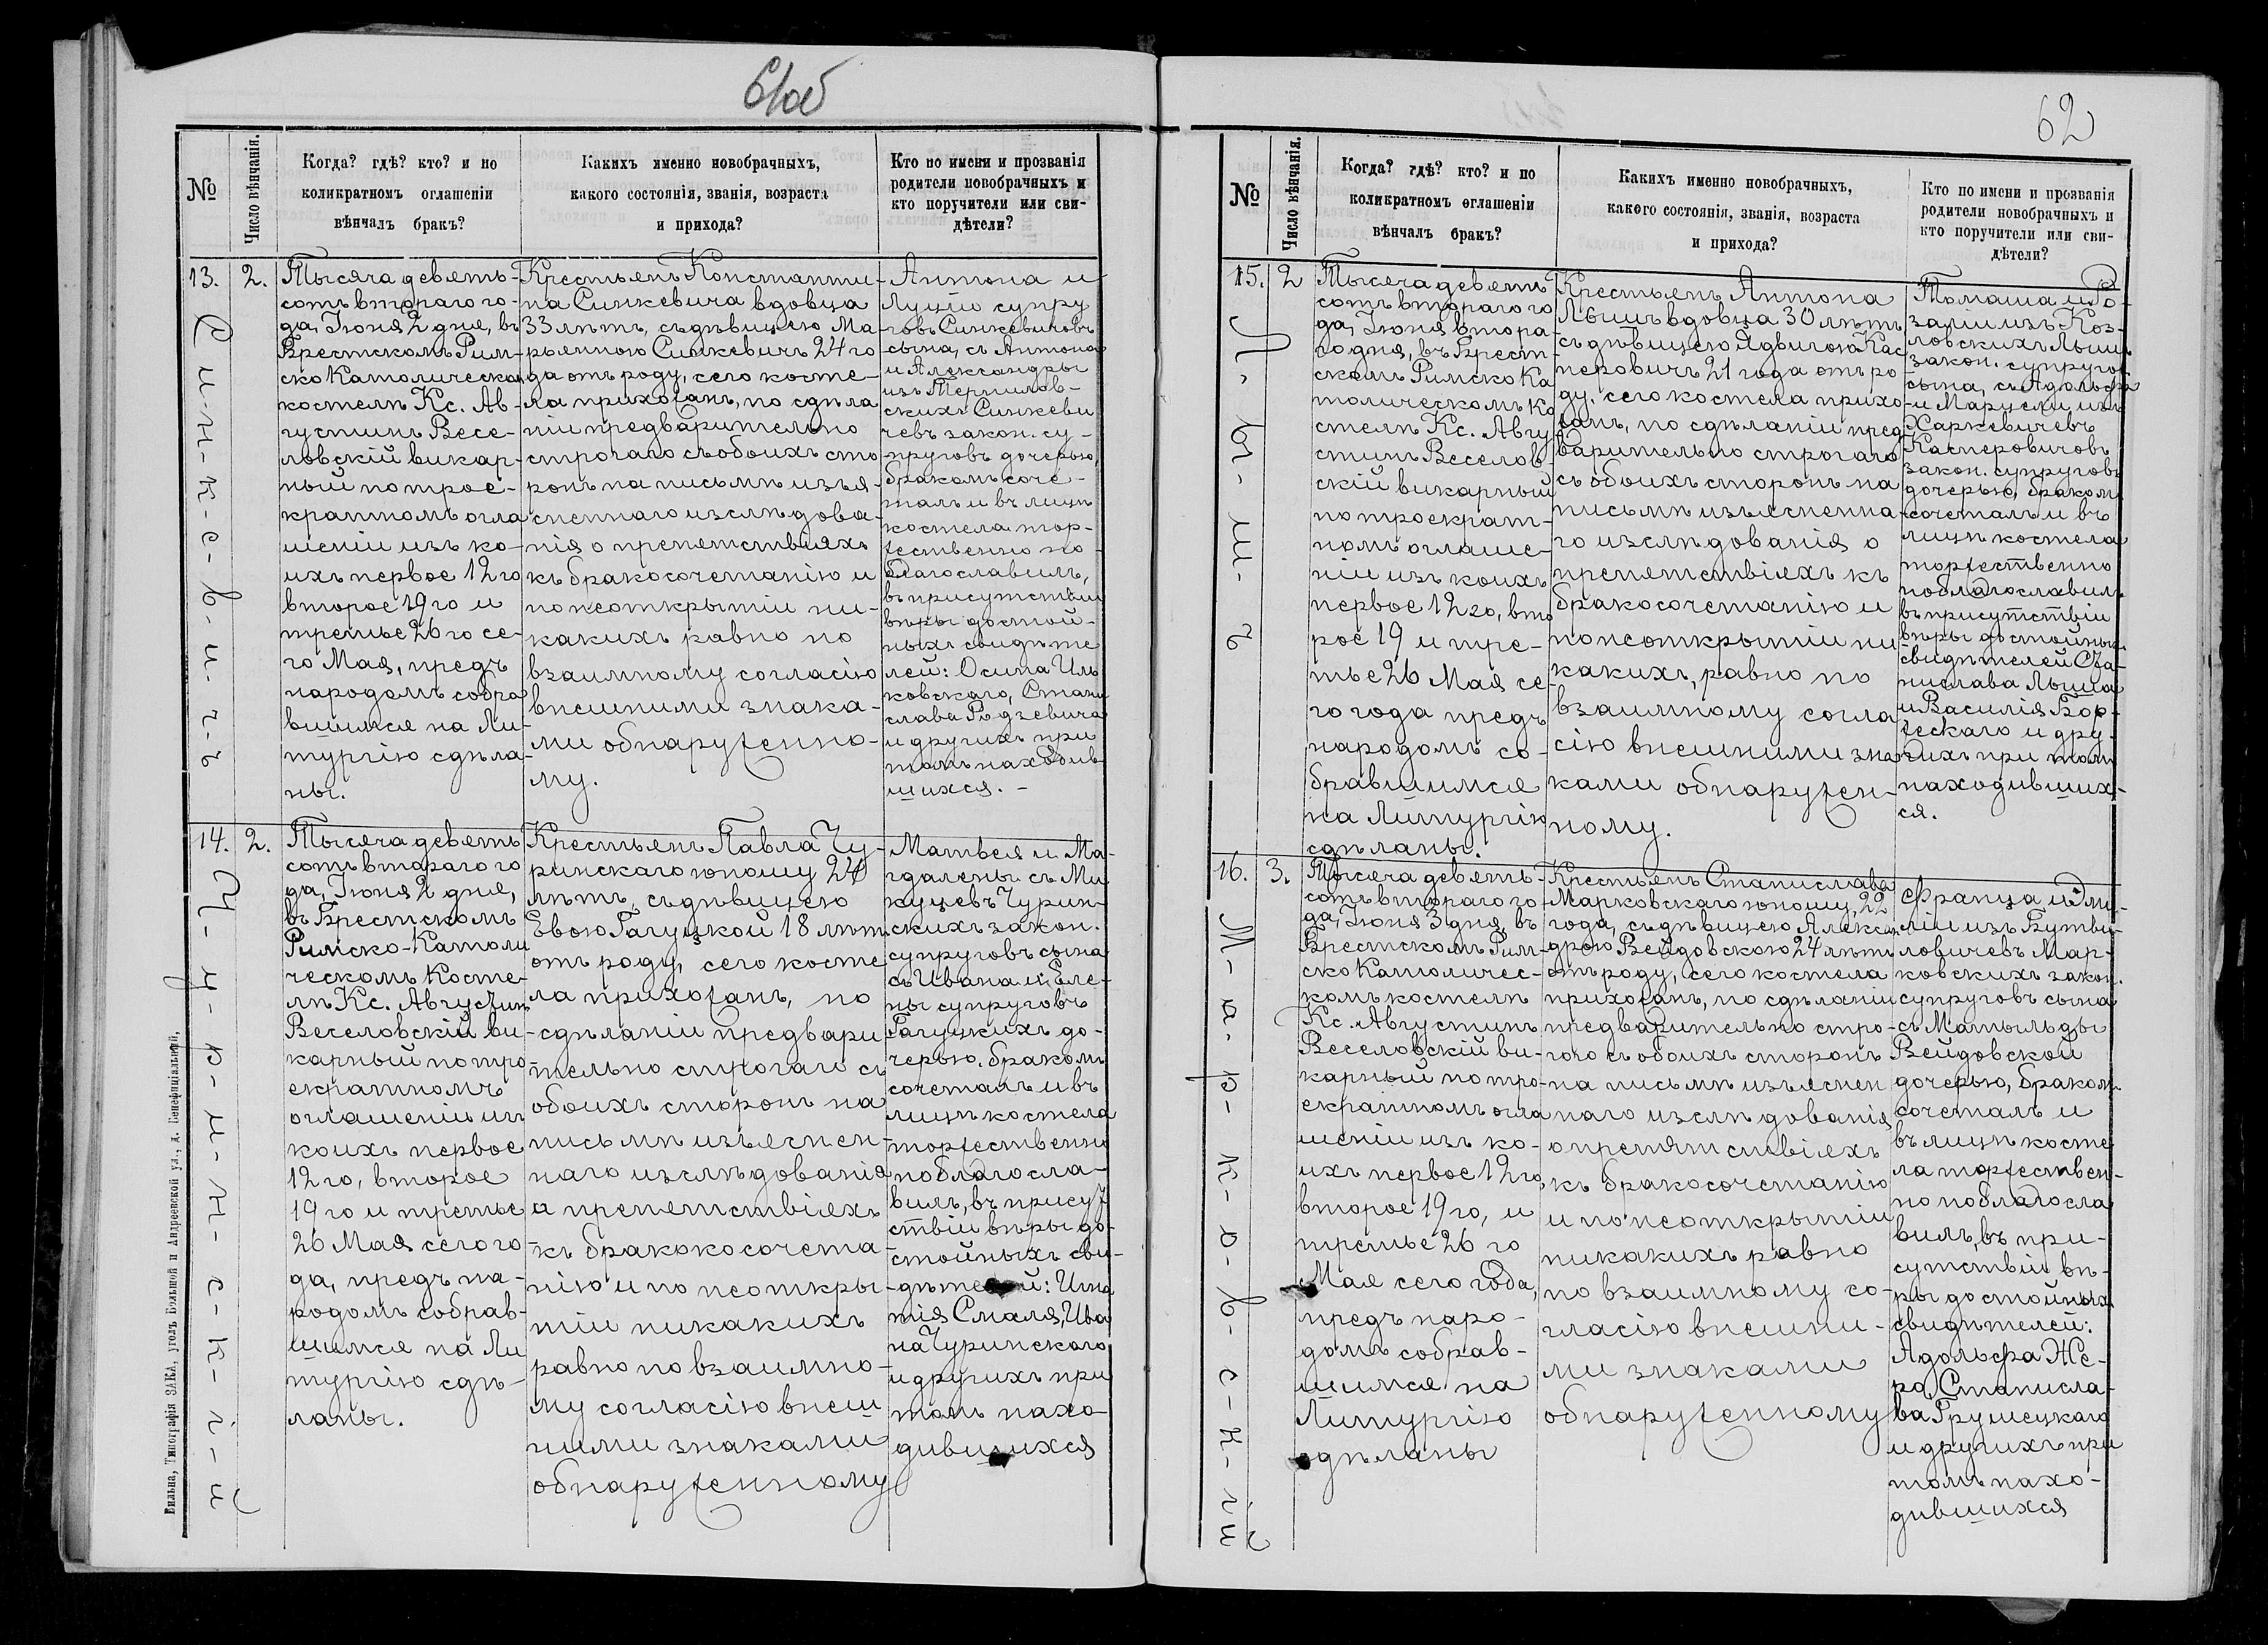 61об
№
Число вѣнчанія.
Когда? гдѣ? кто? и по
коликратномъ оглашеніи
вѣнчалъ бракъ?
Какихъ именно новобрачныхъ,
какого состоянія, званія, возраста
и прихода?
Кто по имени и прозванія
родители новобрачныхъ и
кто поручители или сви-
дѣтели?
13.
2.
С-и-н-к-е-в-и-ч-ъ
Тысяча девять-
сотъ втораго го-
да, Іюня 2 дня, въ
Брестскомъ Рим-
ско Католическом
костелѣ Кс. Ав-
густинъ Весе-
ловскій викар-
ный по трое-
кратномъ огла
шеніи изъ ко-
ихъ первое 12го
второе 19го и
третье 26го се-
го Мая, предъ
народомъ собра
вшимся на Ли-
тургію сдѣла-
ны.
Крестьянъ Константи-
на Синкевича вдовца
33 лѣтъ, съ дѣвицею Ма-
рьянною Синкевичъ 24 го
да отъ роду, сего косте-
ла прихожанъ, по сдѣла
ніи предварительно
строгаго съ обоихъ сто
ронъ на письмѣ изъя-
сненнаго изслѣдова-
нія о препятствіяхъ
къ бракосочетанію и
по неоткрытіи ни-
какихъ равно по
взаимному согласію
внешними знака-
ми обнаруженно-
му.
Антона и
Луціи супру
говъ Синкевичовъ
сына, съ Антона
и Александры
изъ
скихъ Синкеви
чевъ закон. су-
пруговъ дочерью,
бракомъ соче-
талъ и въ лицѣ
костела тор-
жественно по-
благославилъ,
въ присутствіи
вѣры достой-
ныхъ свидѣте
лей: Осипа Иль
ковскаго, Стани
слава Родзевича
и другихъ при
томъ находив-
шихся. -
14.
2.
Ч-у-р-и-н-с-к-і-й
Тысяча девять
сотъ втораго го
да, Іюня 2 дня,
въ Брестскомъ
Римско-Католи
ческомъ Косте-
лѣ Кс. Августин
Веселовскій ви
карный по тро
екратномъ
оглашеніи из
коихъ первое
12го, второе
19го и третье
26 Мая сего го
да, предъ на-
родомъ собрав-
шимся на Ли
тургію сдѣ-
ланы.
Крестьянъ Павла Чу-
ринскаго юношу 24
лѣтъ, съ дѣвицею
Евою Рагуцкой 18 лѣтъ
отъ роду, сего косте
ла прихожанъ, по
сдѣланіи предвари
тельно строгаго съ
обоихъ сторонъ на
письмѣ изъяснен-
наго изслѣдованія
а препятствіяхъ
къ бракокосочета-
нію и по неоткры-
тіи никакихъ
равно по взаимно-
му согласію внеш
ними знаками
обнаруженному
Матвея и Ма-
гдалены съ Ми
куцевъ Чурин-
скихъ закон.
супруговъ сына
съ Ивана и Еле-
ны супруговъ
Рагуцкихъ до-
черью. бракомъ
сочеталъ и въ
лицѣ костела
торжественно
поблагосла-
вилъ, въ присут
ствіи вѣры до-
стойныхъ сви-
дѣтелей: Игна
тія Смаля, Ива
на Чуринскаго
и другихъ при
томъ нахо-
дившихся
Вильна, Типографія ЗАКА, уголъ Большой и Андреевской ул., д. Бенефиціальный.
62
№
Число вѣнчанія.
Когда? гдѣ? кто? и по
коликратномъ оглашеніи
вѣнчалъ бракъ?
Какихъ именно новобрачныхъ,
какого состоянія, званія, возраста
и прихода?
Кто по имени и прозванія
родители новобрачныхъ и
кто поручители или сви-
дѣтели?
15.
2
Л-ы-ш-ъ
Тысяча девять
сотъ втораго го
да, Іюня втора-
го дня, въ Брест-
скомъ Римско Ка
толическомъ Ко
стелѣ Кс. Авгу
стинъ Веселов-
скій викарный
по троекрат-
номъ оглаше-
ніи изъ коихъ
первое 12го, вто
рое 19 и тре-
тье 26 Мая се
го года предъ
народомъ со-
бравшимся
на Литургію
сдѣланы.
Крестьянъ Антона
Лышъ вдовца 30 лѣтъ
съ дѣвицею Ядвигою Кас
перовичъ 21 года отъ ро
ду. сего костела прихо
жанъ, по сдѣланіи пред
варительно строгаго
съ обоихъ сторонъ на
письмѣ изъясненна-
го изслѣдованія о
препятствіяхъ къ
бракосочетанію и
по неоткрытіи ни
какихъ, равно по
взаимному согла
сію внешними зна
ками обнаружен-
ному.
Томаша и Ро-
заліи изъ Коз-
ловскихъ Лышъ
закон. супругов
сына, съ Адольфа
и Марцели изъ
Харкевичевъ
Касперовичовъ
закон. супруговъ
дочерью, бракомъ
сочеталъ и въ
лицѣ костела
торжественно
поблагославилъ
въ присутствіи
вѣры достойных
свидѣтелей Ста-
нислава Лыша
и Василія Бор-
жескаго и дру-
гихъ при томъ
находивших-
ся.
16.
3.
М-а-р-к-о-в-с-к-і-й
Тысяча девять-
сотъ втораго го-
да, Іюня 3 дня, въ
Брестскомъ Рим-
ско Католичес-
комъ костелѣ
Кс. Августинъ
Веселовскій ви-
карный по тро-
екратномъ огла
шеніи изъ ко-
ихъ первое 12го,
второе 19го, и
третье 26 го
Мая сего года,
предъ наро-
домъ собрав-
шимся на
Литургію
сдѣланы
Крестьянъ Станислава
Марковскаго юношу, 22
года, съ дѣвицею Алексан
дрою Вейдовскою 24 лѣтъ
отъ роду, сего костела
прихожанъ, по сдѣланіи
предварительно стро-
гого съ обоихъ сторонъ
на письмѣ изъяснен
наго изслѣдованія
о препятствіяхъ
къ бракосочетанію
и по неоткрытіи
никакихъ равно
по взаимному со-
гласію внешни-
ми знаками
обнаруженному
Франца и Эми-
ліи изъ Бутви-
ловичевъ Мар-
ковскихъ закон.
супруговъ сына
съ Матыльды
Вейдовской
дочерью, бракомъ
сочеталъ и
въ лицѣ косте
ла торжествен-
но поблагосла
вилъ, въ при-
сутствіи вѣ-
ры достойныхъ
свидѣтелей:
Адольфа Же-
ра, Станисла-
ва Грушецкаго
и другихъ при
томъ нахо-
дившихся